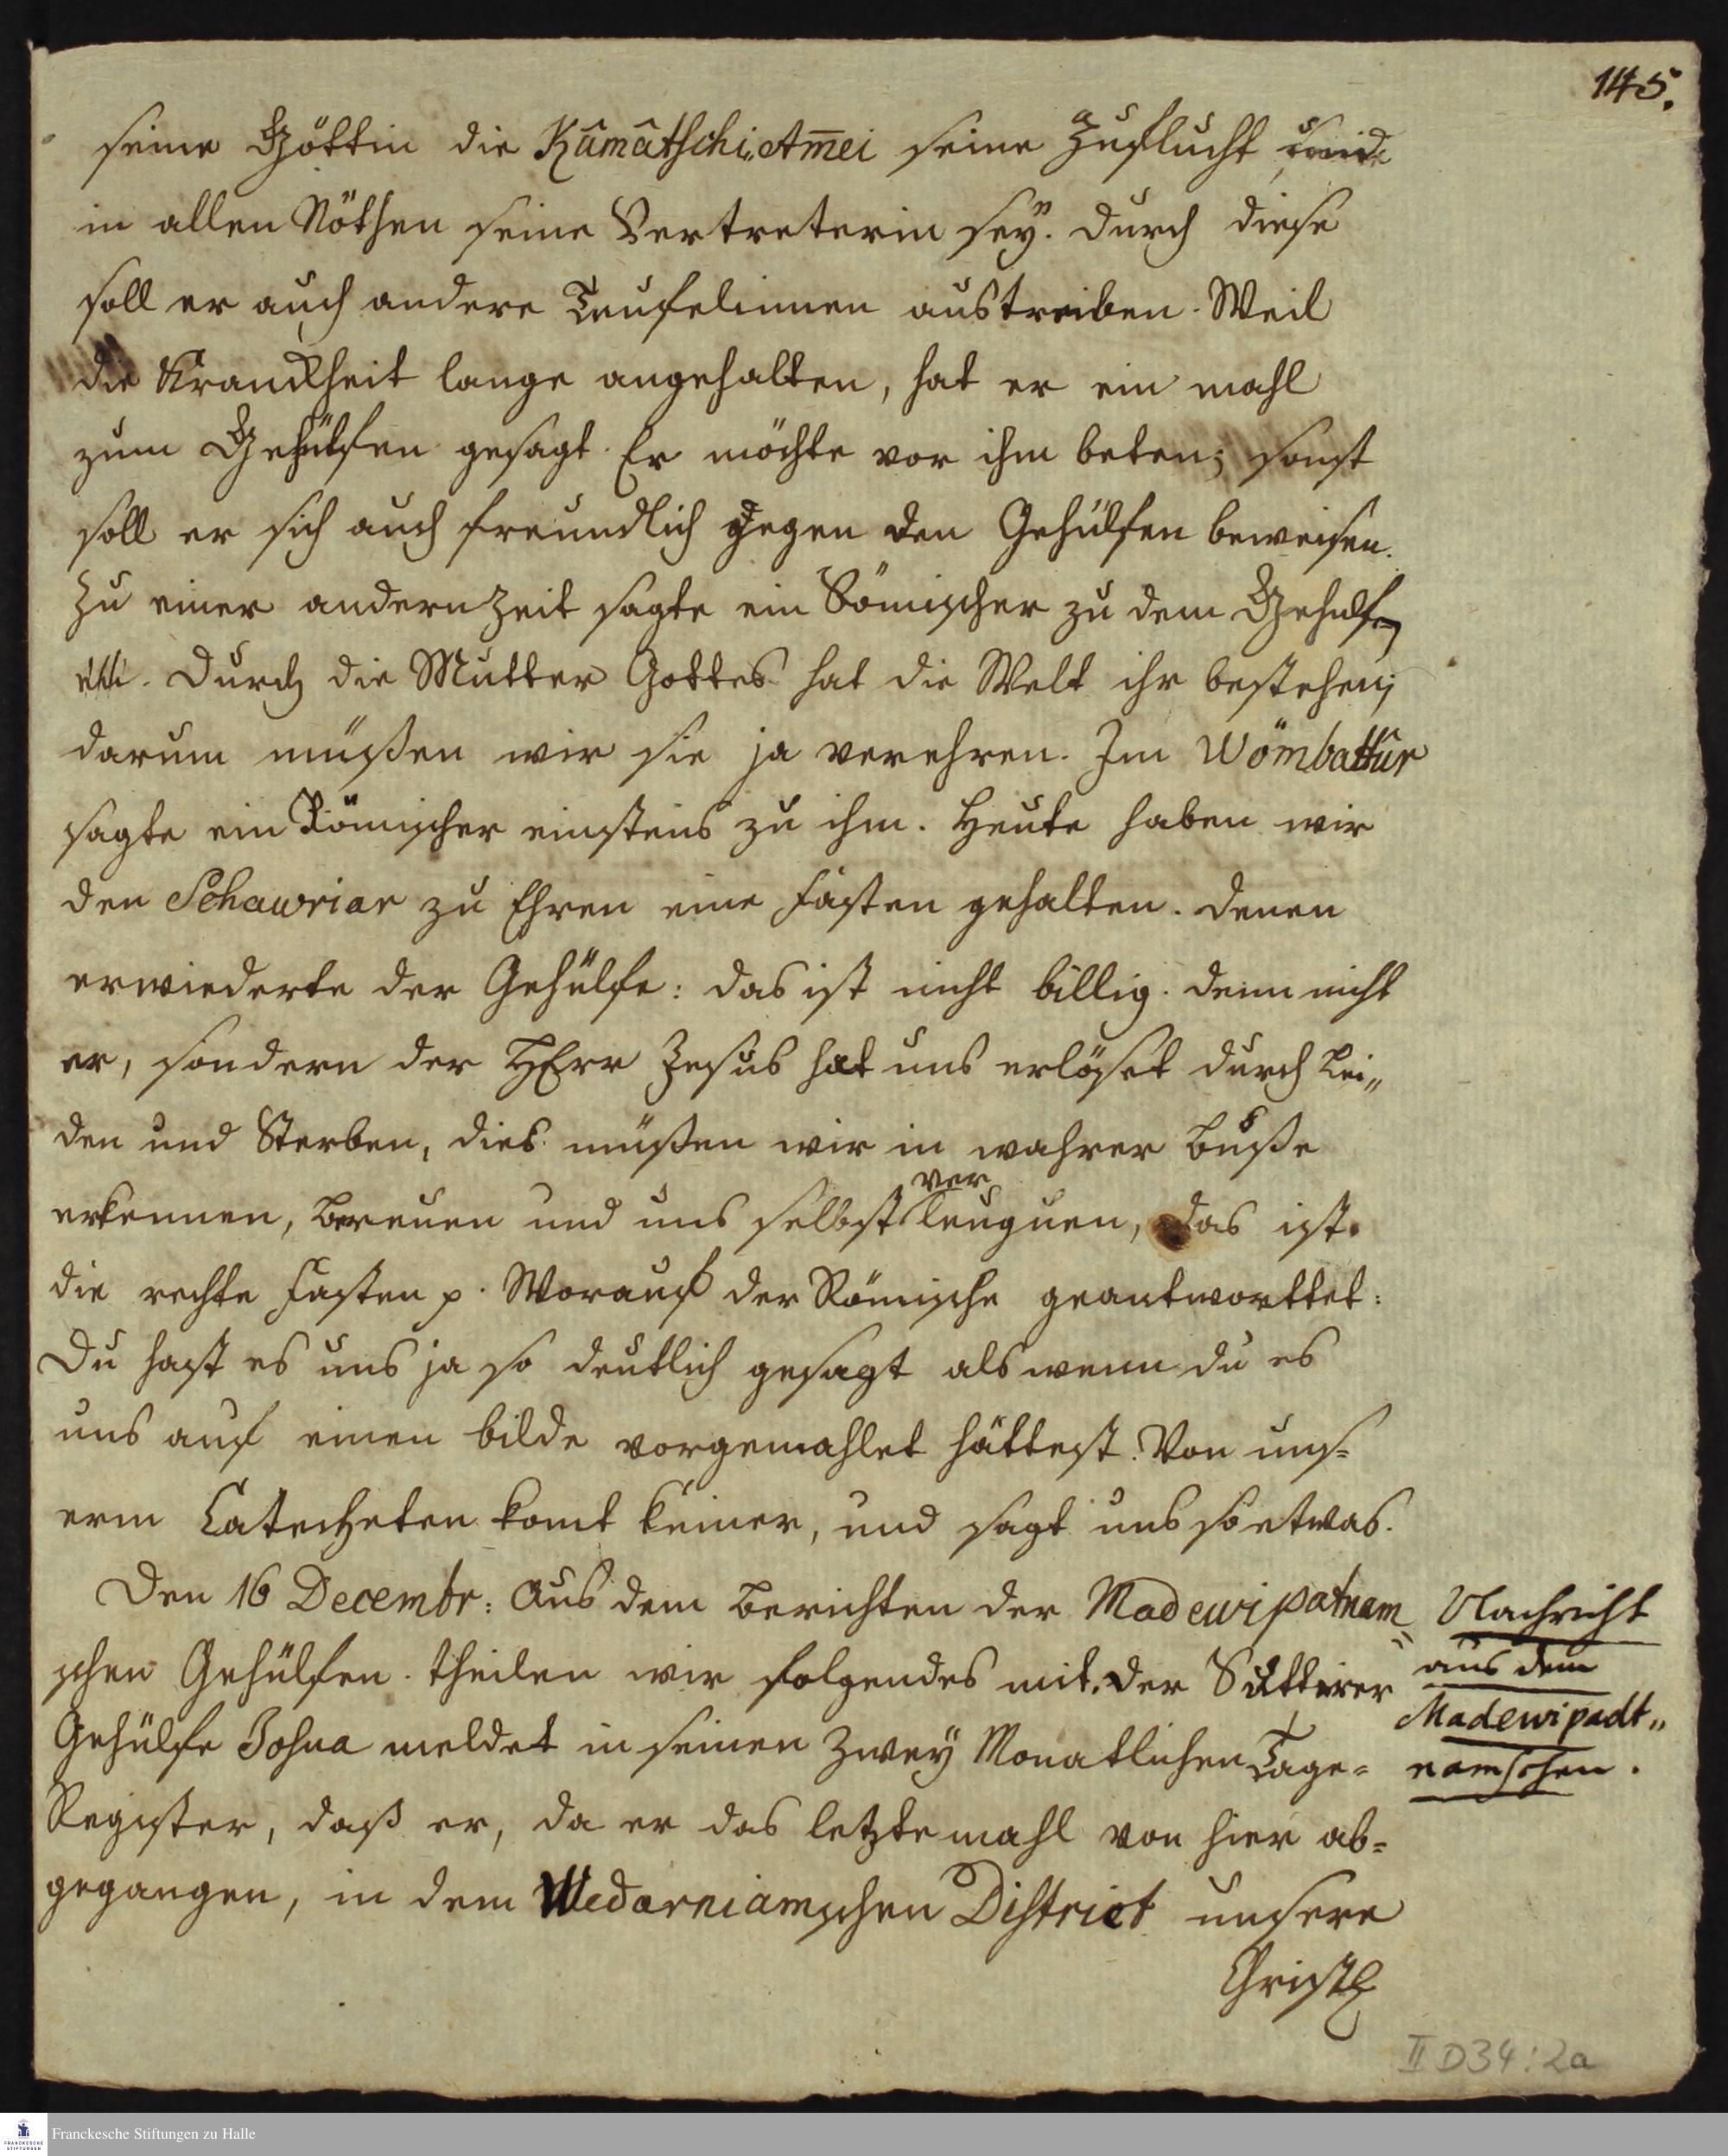 145.
seine Göttin die Kâmâtschi„Am̅ei seine Zuflucht und
in allen Nöthen seine Vertreterin sey. Durch diese
soll er auch andere Teufelinnen austreiben. Weil
die Kranckheit lange angehalten, hat er ein mahl
zum Gehülfen gesagt. Er möchte vor ihm beten; sonst
soll er sich auch freundlich gegen den Gehülfen beweisen.
Zu einer andern Zeit sagte ein Römischer zu dem Gehülfen
Durch die Mutter Gottes hat die Welt ihr bestehen;
darum müßen wir sie ja verehren. Im Wömbattûr
sagte ein Römischer einstens zu ihm. Heute haben wir
den Schawriar zu Ehren eine Fasten gehalten. Denen
erwiederte der Gehülfe: das ist nicht billig. denn nicht
er, sondern der HErr Jesus hat uns erlöset durch Lei„
den und Sterben, dies müßen wir in wahrer Buße
erkennen, bereuen und uns selbst verleugnen, das ist.
die rechte Fasten p. Worauf der Römische geantworttet:
Du hast es uns ja so deutlich gesagt als wenn du es
uns auf einen bilde vorgemahlet hättest. Von uns=
erm Catecheten komt keiner, und sagt uns so etwas.
Den 16 Decembr: Aus dem Berichten der Madewipatnam„
schen Gehülfen. theilen wir folgendes mit. Der Sattirer
Gehülfe Josua meldet in seinen Zwey Monatlichen Tage=
Register, daß er, da er das letzte mahl von hier ab=
gegangen, in dem Wedarniamschen District unsere
Christen
Nachricht
aus dem
Madewipadt„
namschen.
II D34:2a
Franckesche Stiftungen zu Halle